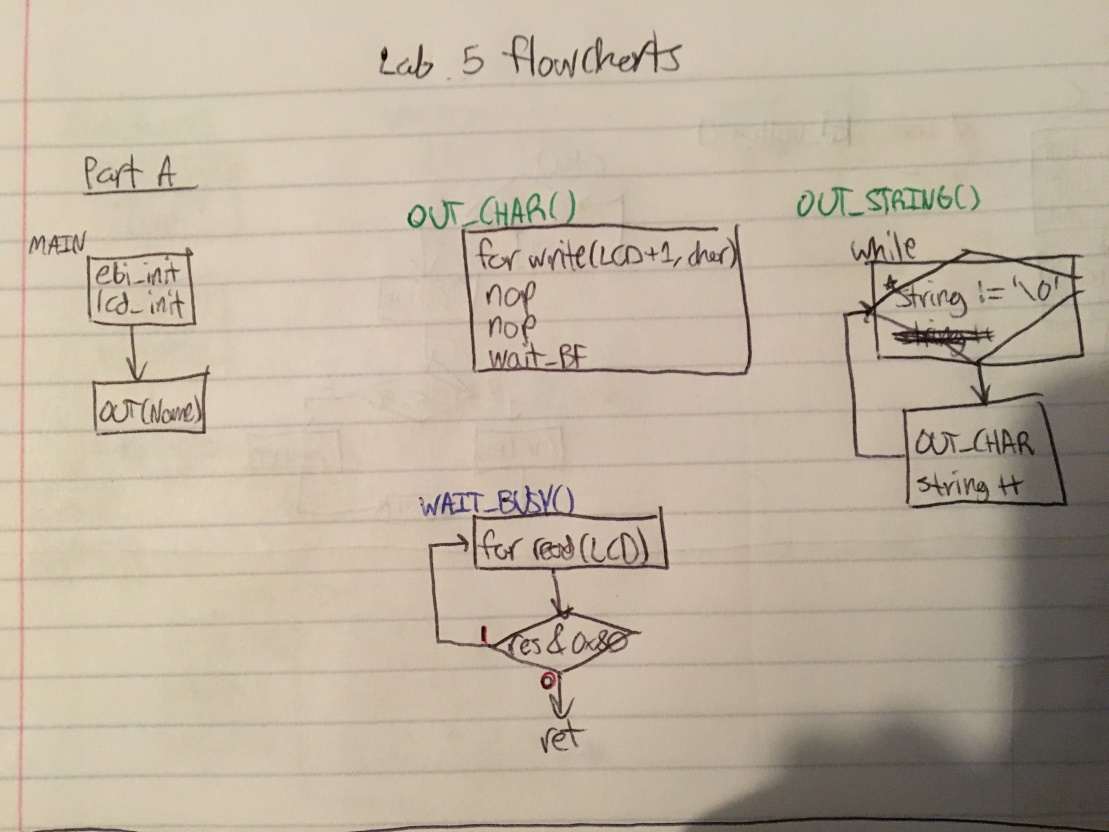 Lab 5 flowcherts
Part A
MAIN
ebi_init
lcd_init
OUT(Name)
OUT_CHAR()
for write(LCD+1, char)
nop
nop
wait_BF
OUT_STRING()
while
*string != '\0'
OUT_CHAR
string ++
WAIT_BUSY()
for read(LCD)
res & 0x80
1
0
ret